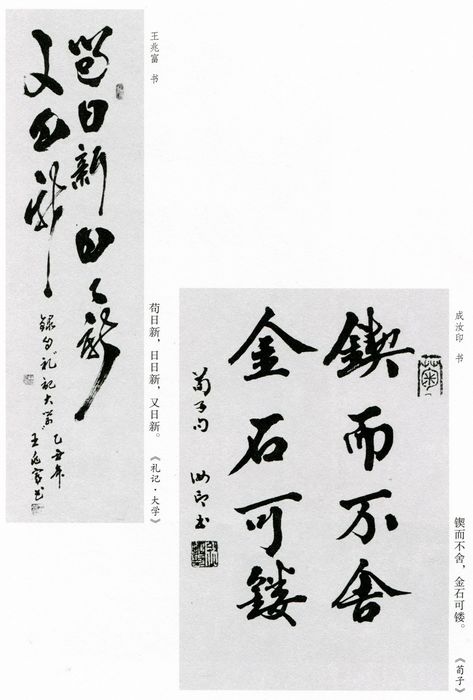 王兆富 书
苟日新日々新
又日新
録自礼记大学
王兆富书
苟日新，日日新，又日新。
《礼记·大学》
成汝印 书
鍥而不舍
金石可鏤
荀子句
汝印书
锲而不舍，金石可镂。
《荀子》